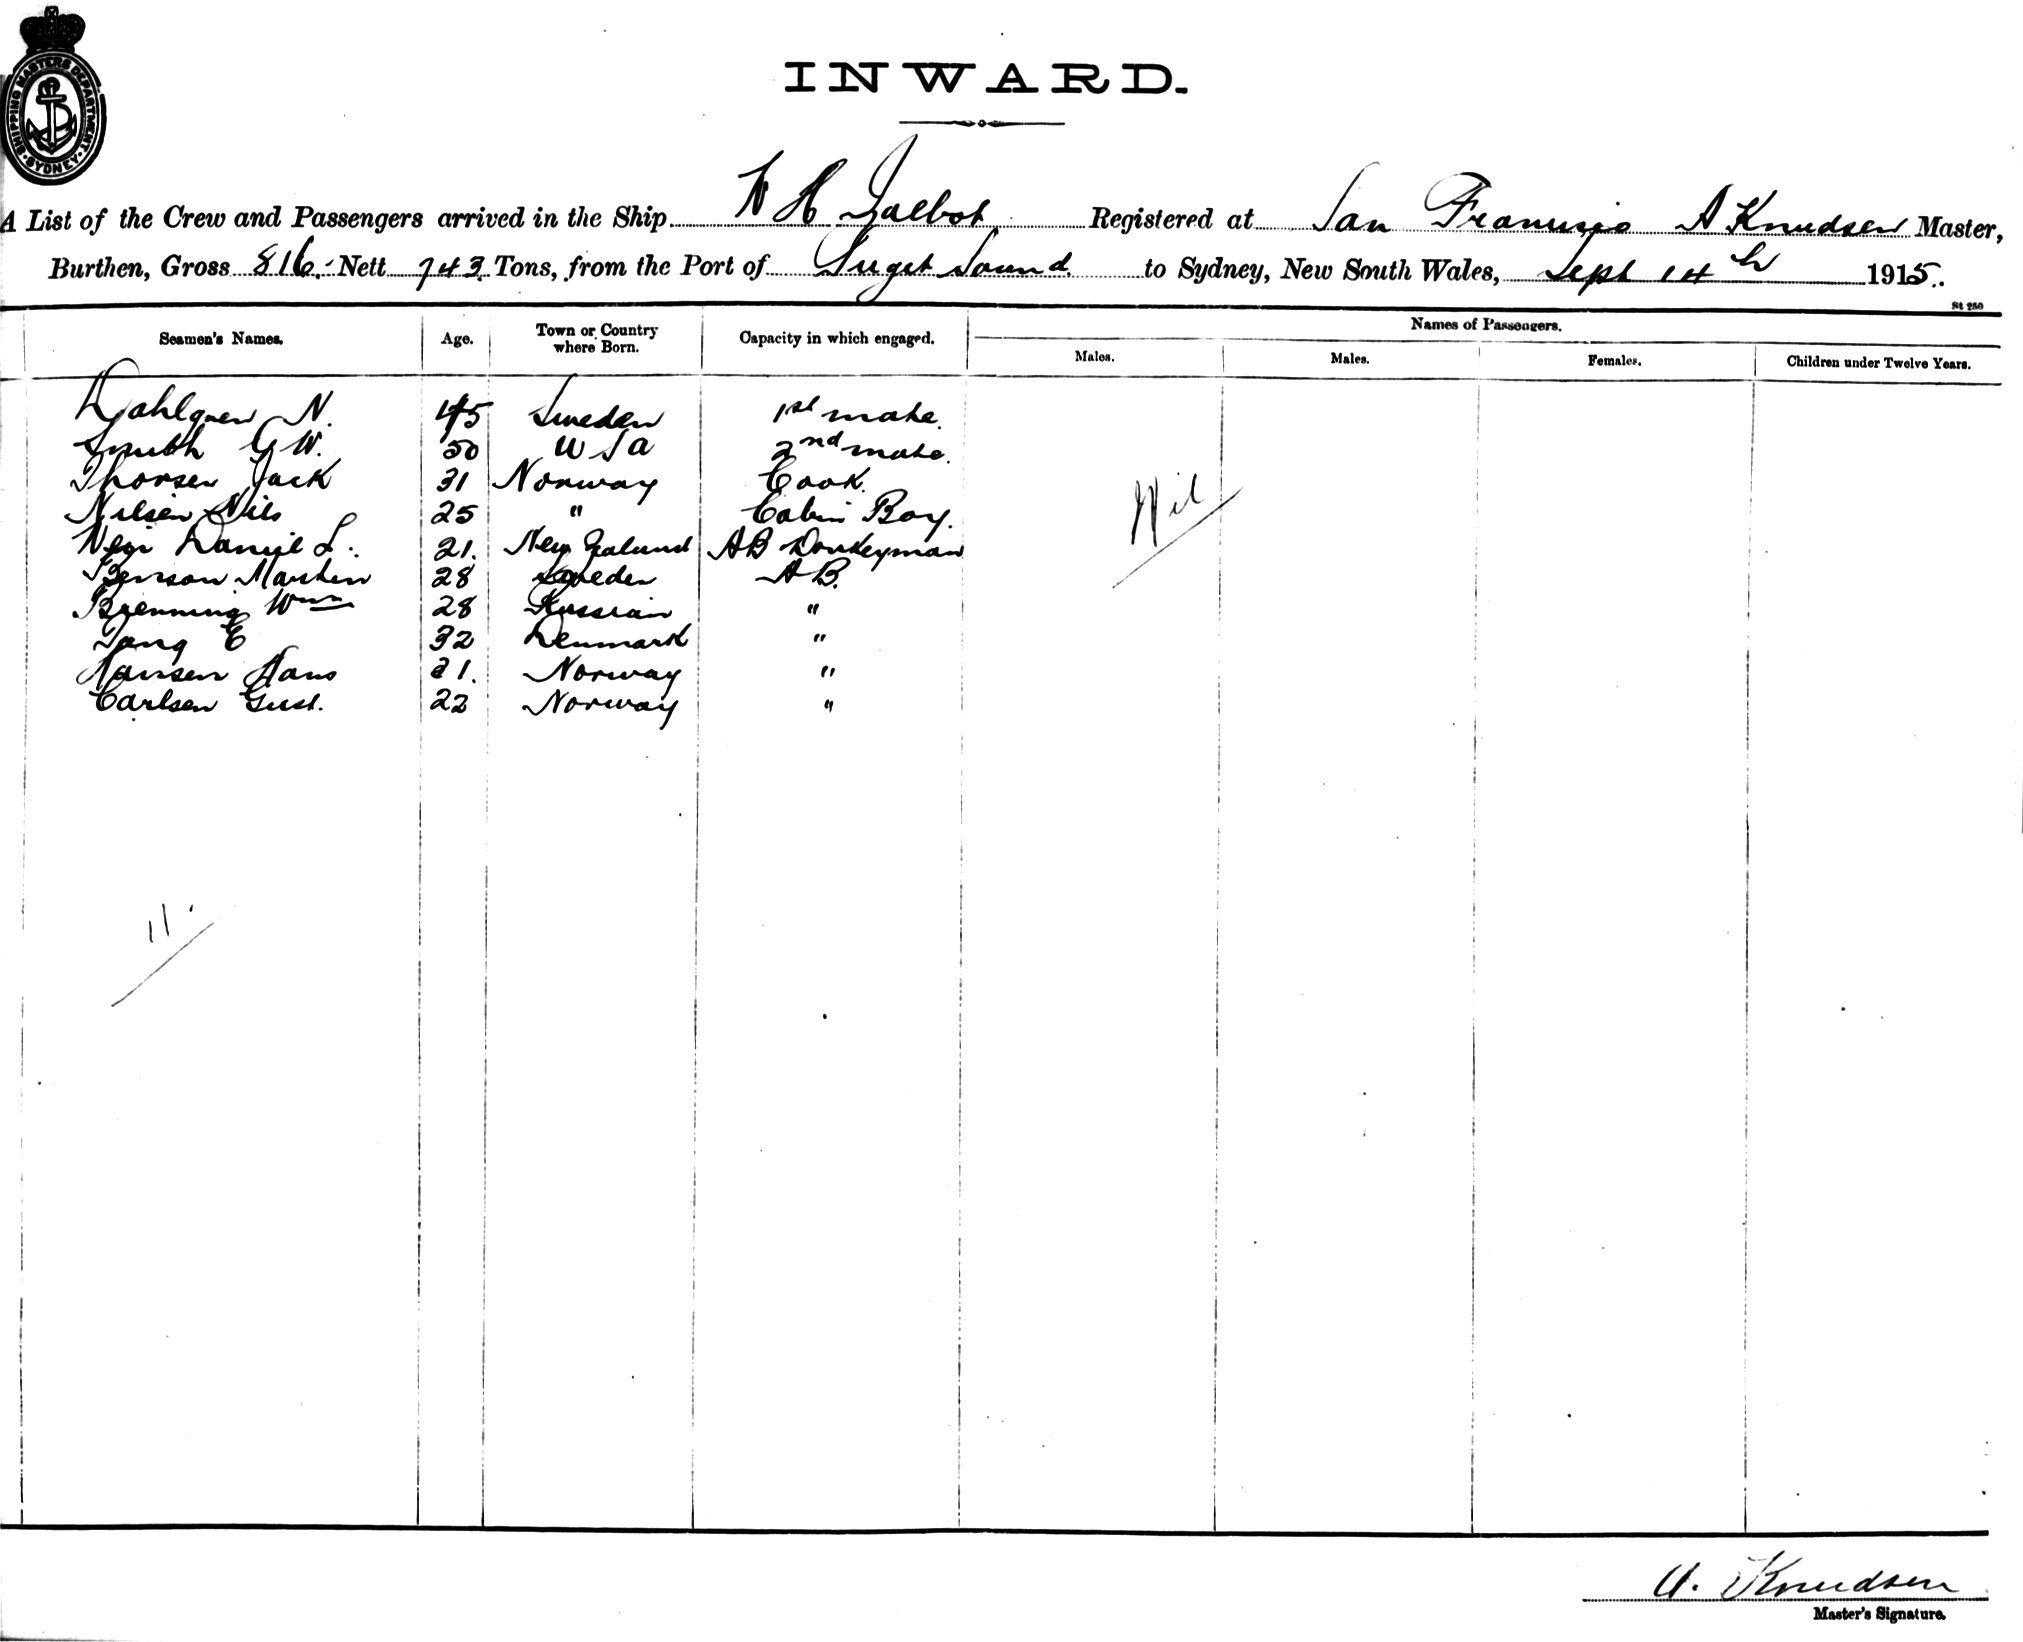 SHIPPING MASTERS DEPARTMENT. SYDNEY
INWARD.
A List of the Crew and Passengers arrived in the Ship W H Talbot Registered at San Francisco A Knudsen Master,
Burthen, Gross 816. Nett 743 Tons, from the Port of Puget Sound to Sydney, New South Wales, Sept 14th 1915.
St 250
Seamen's Names. Age. Town or Country where Born. Capacity in which engaged. Names of Passengers.
Males. Males. Females. Children under Twelve Years.
Dahlgren N. 45 Sweden 1st mate.
Smith G W. 50 U S A 2nd mate.
Thorsen Jack 31 Norway Cook.
Nilsen Nils 25 " Cabin Boy.
Daniel L. 21. New Zealand AB Donkeyman
Benson Martin 28 Sweden A B.
Brenning Wm 28 Russian "
Tang E 32 Denmark "
Hansen Hans 21. Norway "
Carlsen Gust. 22 Norway "
Nil
11.
A. Knudsen
Master's Signature.